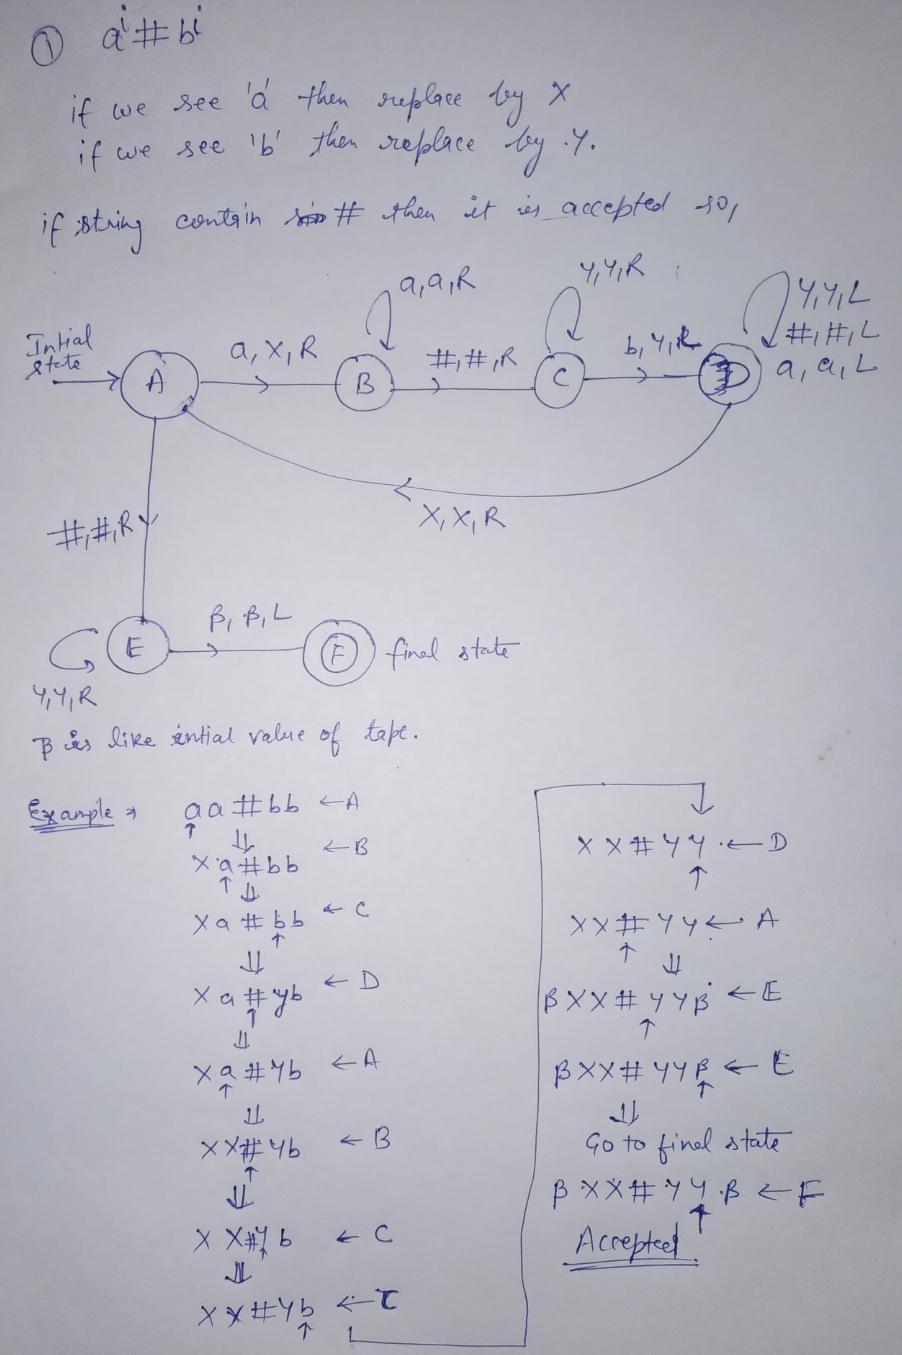 ① aⁱ#bⁱ
if we see 'a' then replace by X
if we see 'b' then replace by Y.
if string contain # then it is accepted so,
a,a,R
Y,Y,R
Y,Y,L
#,#,L
a,a,L
Intial state
A
a,X,R
B
#,#,R
C
b,Y,R
D
X,X,R
#,#,R
E
β,β,L
F
final state
Y,Y,R
β is like intial value of tape.
Example ⇒
aa#bb ← A
↑
⇓
Xa#bb ← B
↑
⇓
Xa#bb ← C
↑
⇓
Xa#yb ← D
↑
⇓
Xa#Yb ← A
↑
⇓
XX#Yb ← B
↑
⇓
XX#Yb ← C
↑
⇓
XX#Yb ← C
↑
XX#YY ← D
↑
XX#YY ← A
↑
⇓
βXX#YYβ ← E
↑
βXX#YYβ ← E
↑
⇓
Go to final state
βXX#YYβ ← F
↑
Accepted